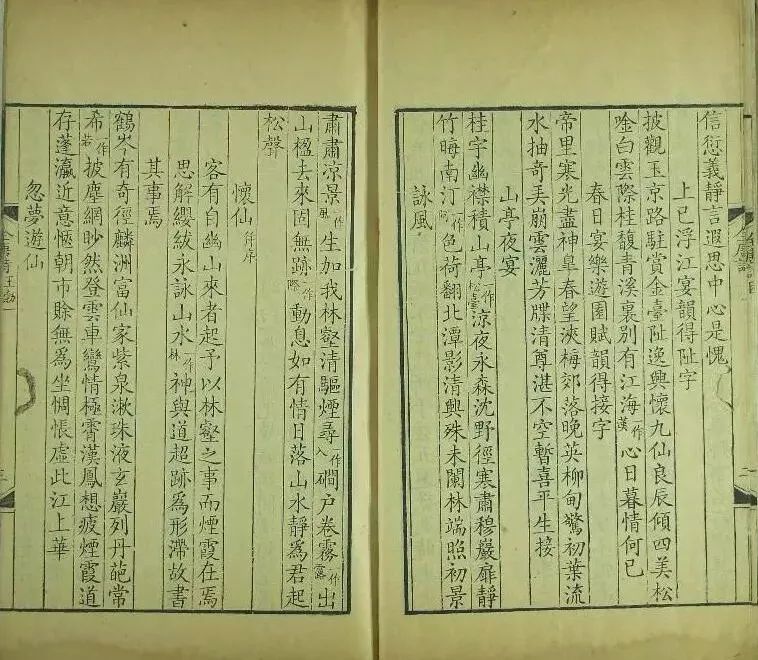 信衍義靜言遐思中心是愧
上巳浮江宴韻得阯字
披觀玉京路駐賞金臺阯逸興懷九仙良辰傾四美松
唫白雲際桂馥青溪裏別有江海一作漢心日暮情何已
春日宴樂遊園賦韻得接字
帝里寒光盡神臯春望浹梅郊落晚英柳甸驚初葉流
水抽奇弄崩雲灑芳牒清尊湛不空暫喜平生接
山亭夜宴
桂宇幽襟積山亭一作松臺涼夜永森沈野徑寒肅穆巖扉靜
竹晦南汀一作色荷翻北潭影清興殊未闌林端照初景
詠風
肅肅涼景一作風生加我林壑清驅煙尋一作入磵戶卷霧一作出
山楹去來固無跡一作際動息如有情日落山水靜爲君起
松聲
懷仙并序
客有自幽山來者起予以林壑之事而煙霞在焉
思解纓紱永詠山水一作林神與道超跡爲形滯故書
其事焉
鶴岑有奇徑麟洲富仙家紫泉漱珠液玄巖列丹葩常
希一作若披塵網眇然登雲車鸞情極霄漢鳳想疲煙霞道
存蓬瀛近意愜朝市賒無爲坐惆悵虛此江上華
忽夢遊仙